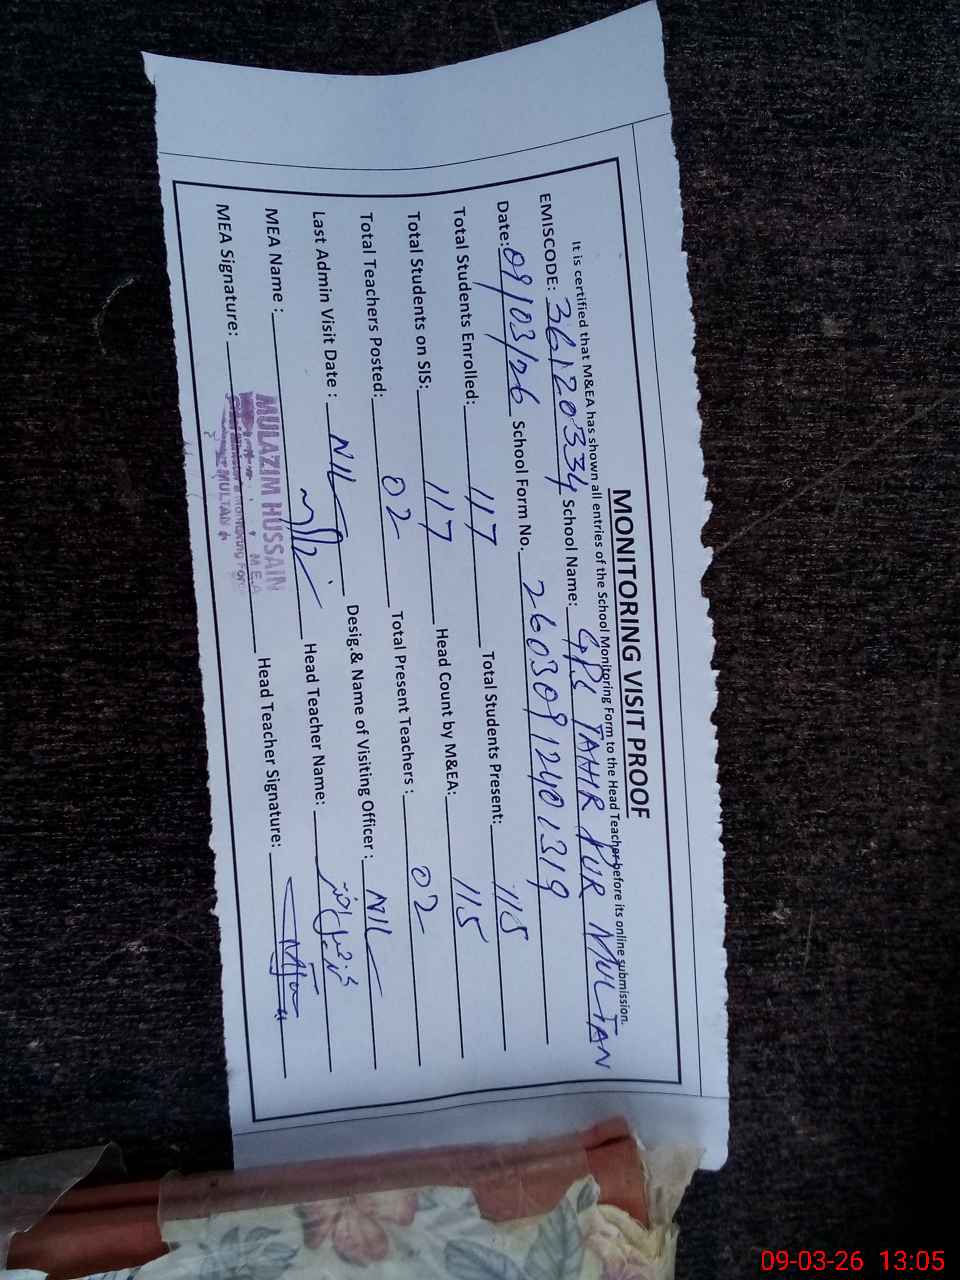 MONITORING VISIT PROOF
It is certified that M&EA has shown all entries of the School Monitoring Form to the Head Teacher before its online submission.
EMISCODE: 36120334 School Name: GPS TAHR PUR MULTAN
Date: 09/03/26 School Form No. 26030912401319
Total Students Enrolled: 117 Total Students Present: 115
Total Students on SIS: 117 Head Count by M&EA: 115
Total Teachers Posted: 02 Total Present Teachers : 02
Last Admin Visit Date : NIL Desig.& Name of Visiting Officer : NIL
MEA Name : Head Teacher Name:
MEA Signature: Head Teacher Signature:
MULAZIM HUSSAIN
M.E.A
Monitoring Force
MULTAN
09-03-26 13:05